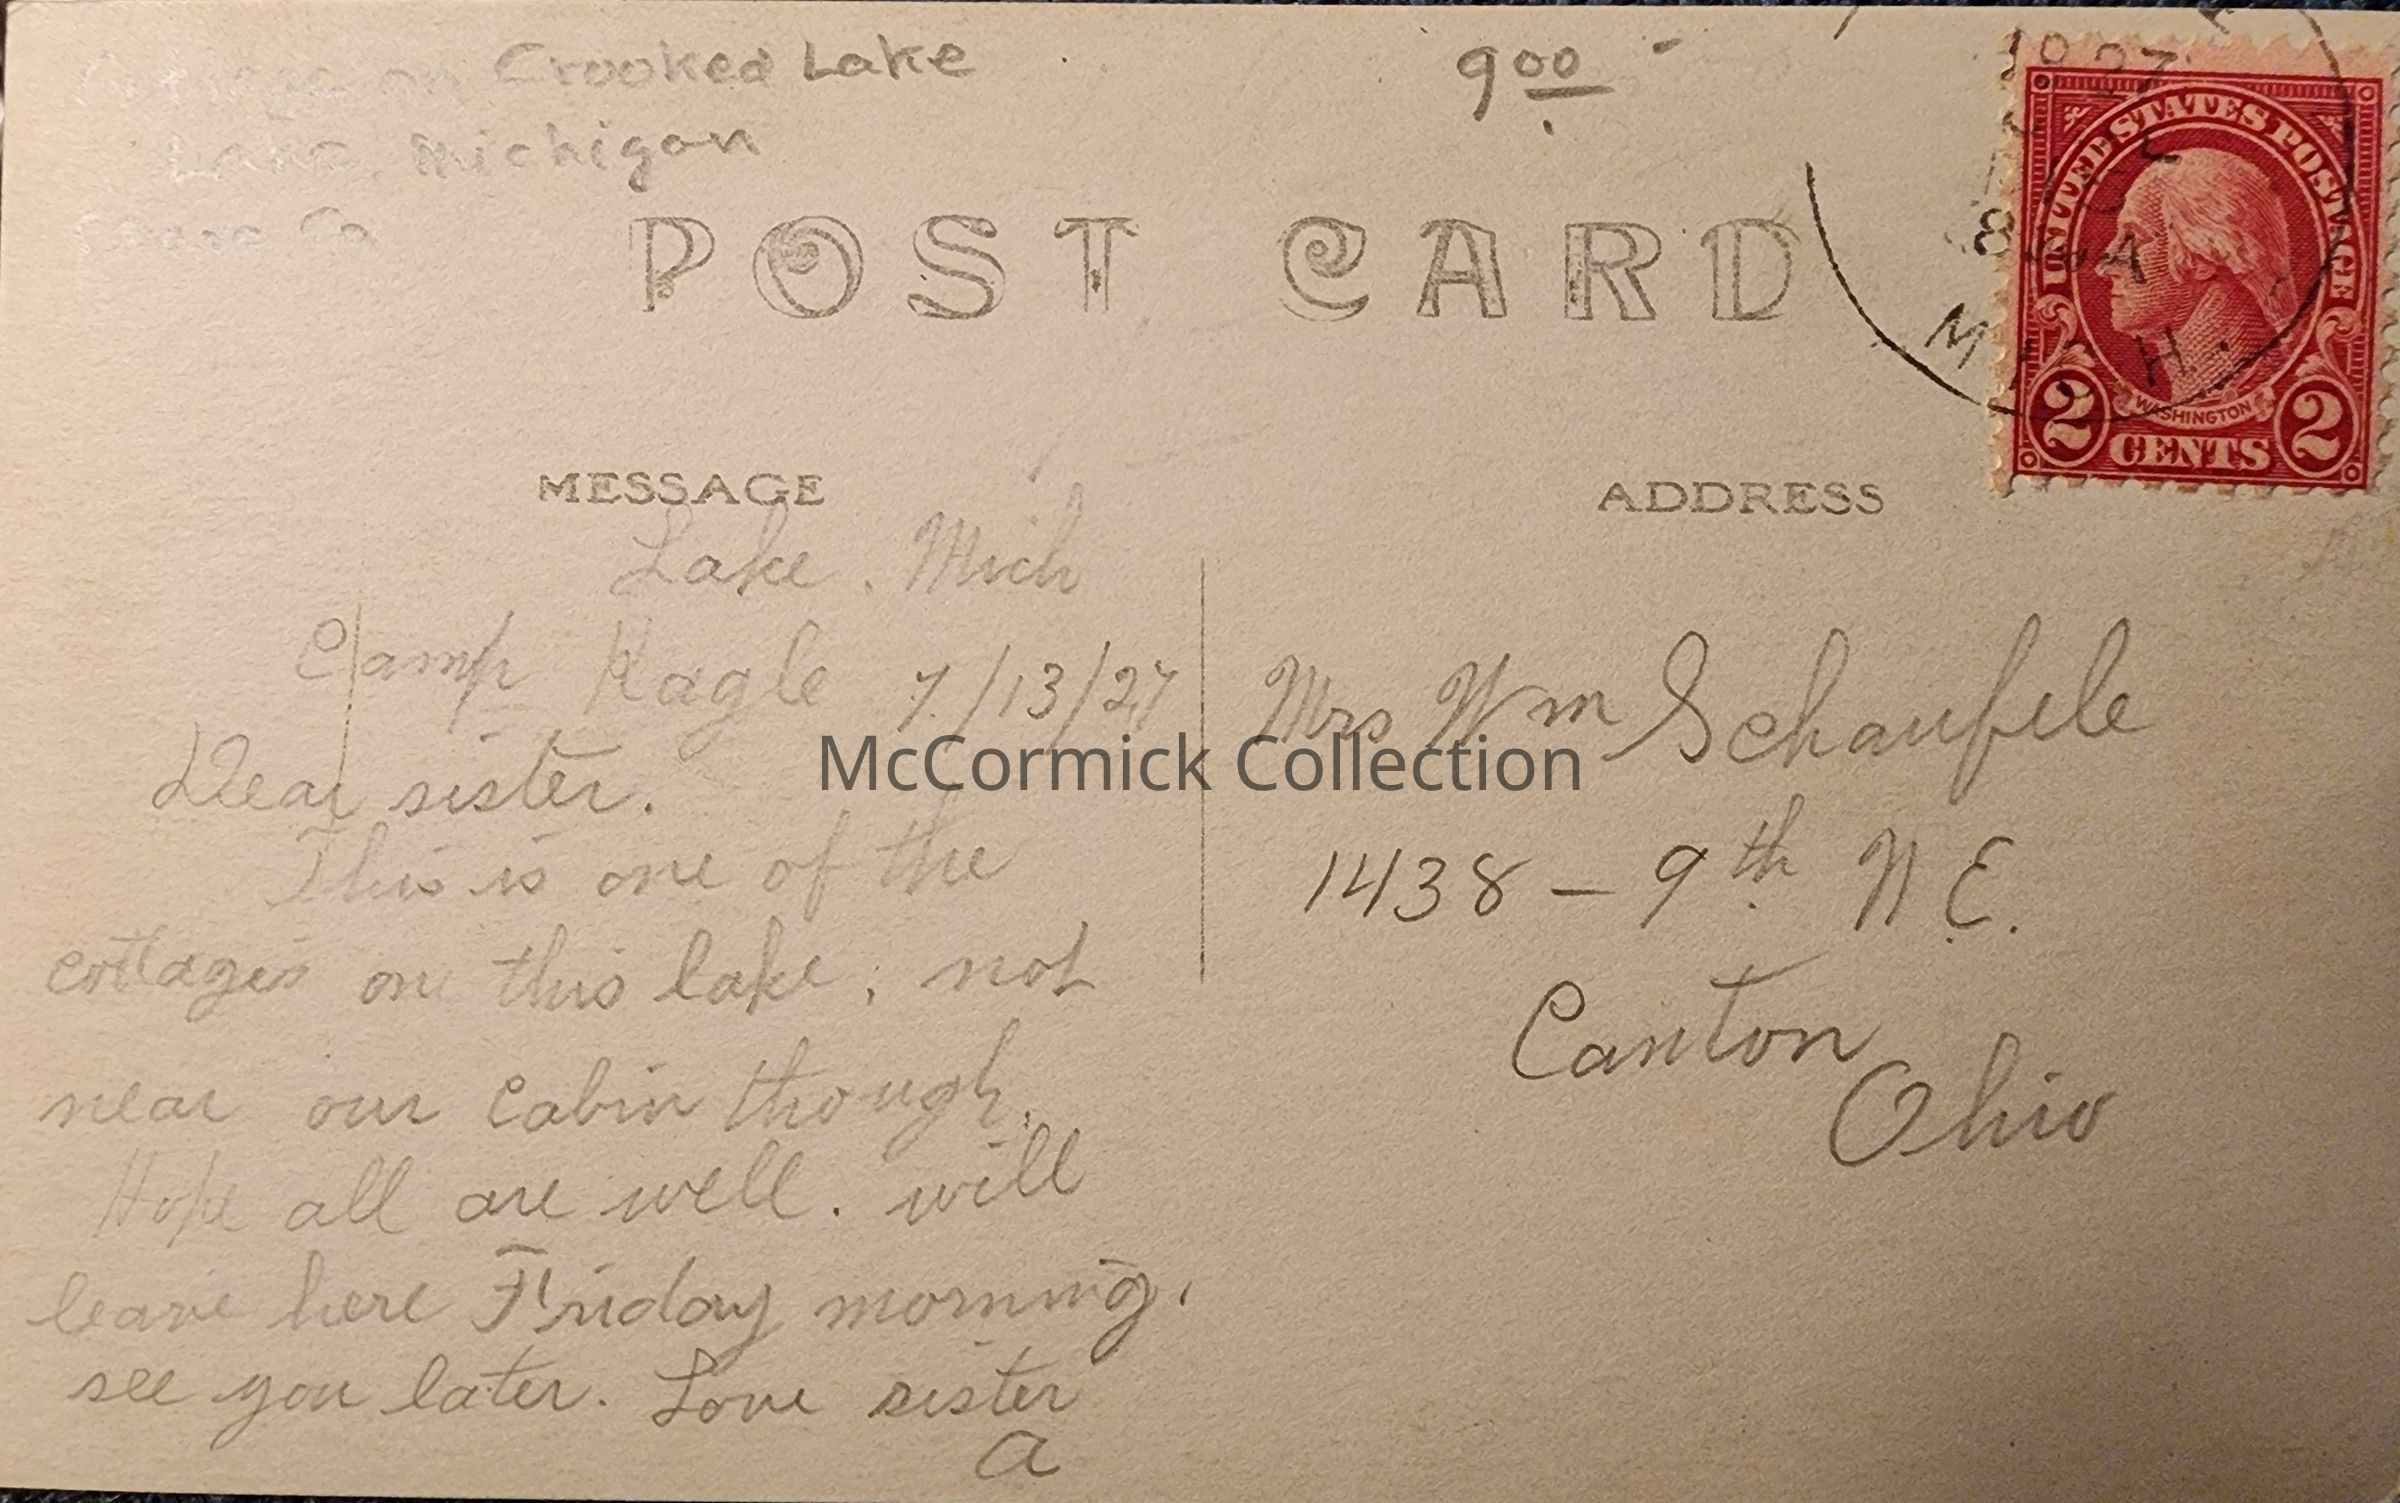 Cottage on Crooked Lake
Lake, Michigan
Co
9 00
POST CARD
MESSAGE
ADDRESS
1927
8 A
MICH.
UNITED STATES POSTAGE
WASHINGTON
2 CENTS 2
Lake, Mich
Camp Kagle 7/13/27
Dear sister.
This is one of the
cottages on this lake; not
near our cabin though.
Hope all are well. will
leave here Friday morning.
see you later. Love sister
a
Mrs Wm Schaufele
1438 - 9th N.E.
Canton
Ohio
McCormick Collection